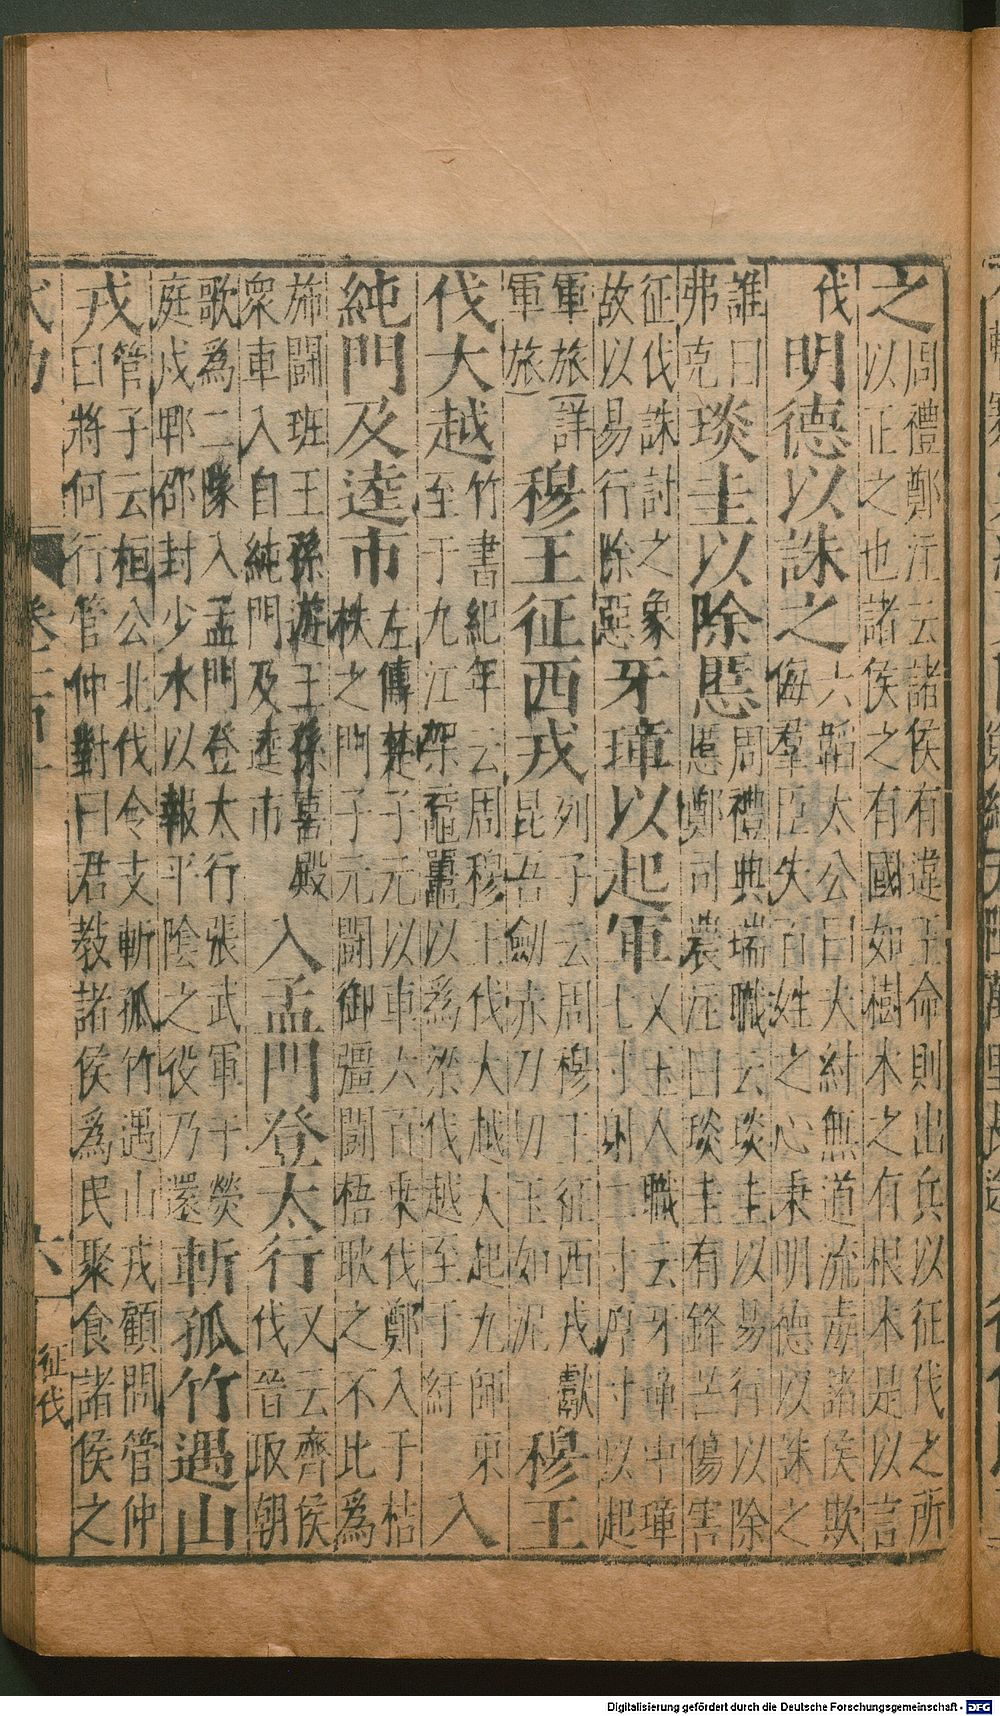 之
周禮鄭注云諸侯有違王命則出兵以征伐之所
以正之也諸侯之有國如樹木之有根本是以言
伐
明德以誅之
六韜太公曰大紂無道流毒諸侯欺
侮羣臣失百姓之心秉明德以誅之
誰曰
弗克
琰圭以除慝
周禮典瑞職云琰圭以易行以除
慝鄭司農注曰琰圭有鋒芒傷害
征伐誅討之象
故以易行除惡
牙璋以起軍
又玉人職云牙璋中璋
七寸射二寸厚寸以起
軍旅詳
軍旅
穆王征西戎
列子云周穆王征西戎獻
昆吾劍赤刀切玉如泥
穆王
伐大越
竹書紀年云周穆王伐大越大起九師東
至于九江架黿鼉以為梁伐越至于紆
入
純門及逵市
左傳楚子元以車六百乘伐鄭入于桔
柣之門子元鬭御彊鬭梧耿之不比為
旆鬭班王孫遊王孫喜殿
衆車入自純門及逵市
入孟門登太行
又云齊侯
伐晉取朝
歌為二隊入孟門登太行張武軍于熒
庭戍郫邵封少水以報平陰之役乃還
斬孤竹遇山
戎
管子云桓公北伐令支斬孤竹遇山戎顧問管仲
曰將何行管仲對曰君教諸侯為民聚食諸侯之
六
征伐
Digitalisierung gefördert durch die Deutsche Forschungsgemeinschaft - DFG